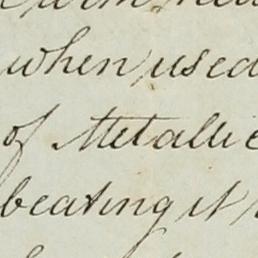 when used
of Metallic
beating it